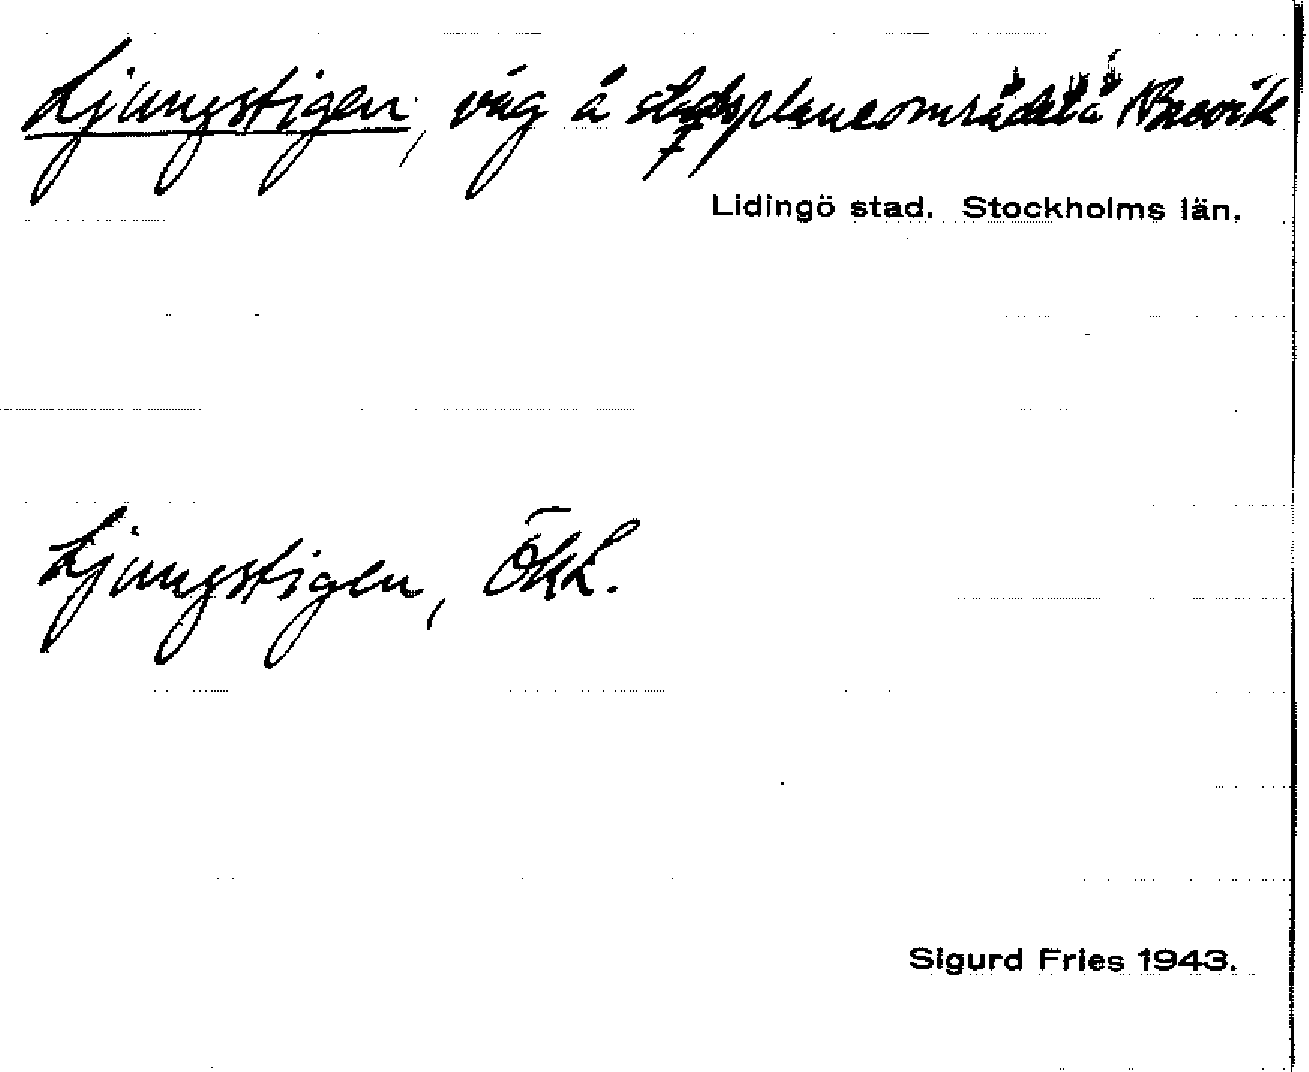 Ljungstigen, väg å stadsplaneområdet Brevik
Lidingö stad. Stockholms län.
Ljungstigen, ÖkL.
Sigurd Fries 1943.